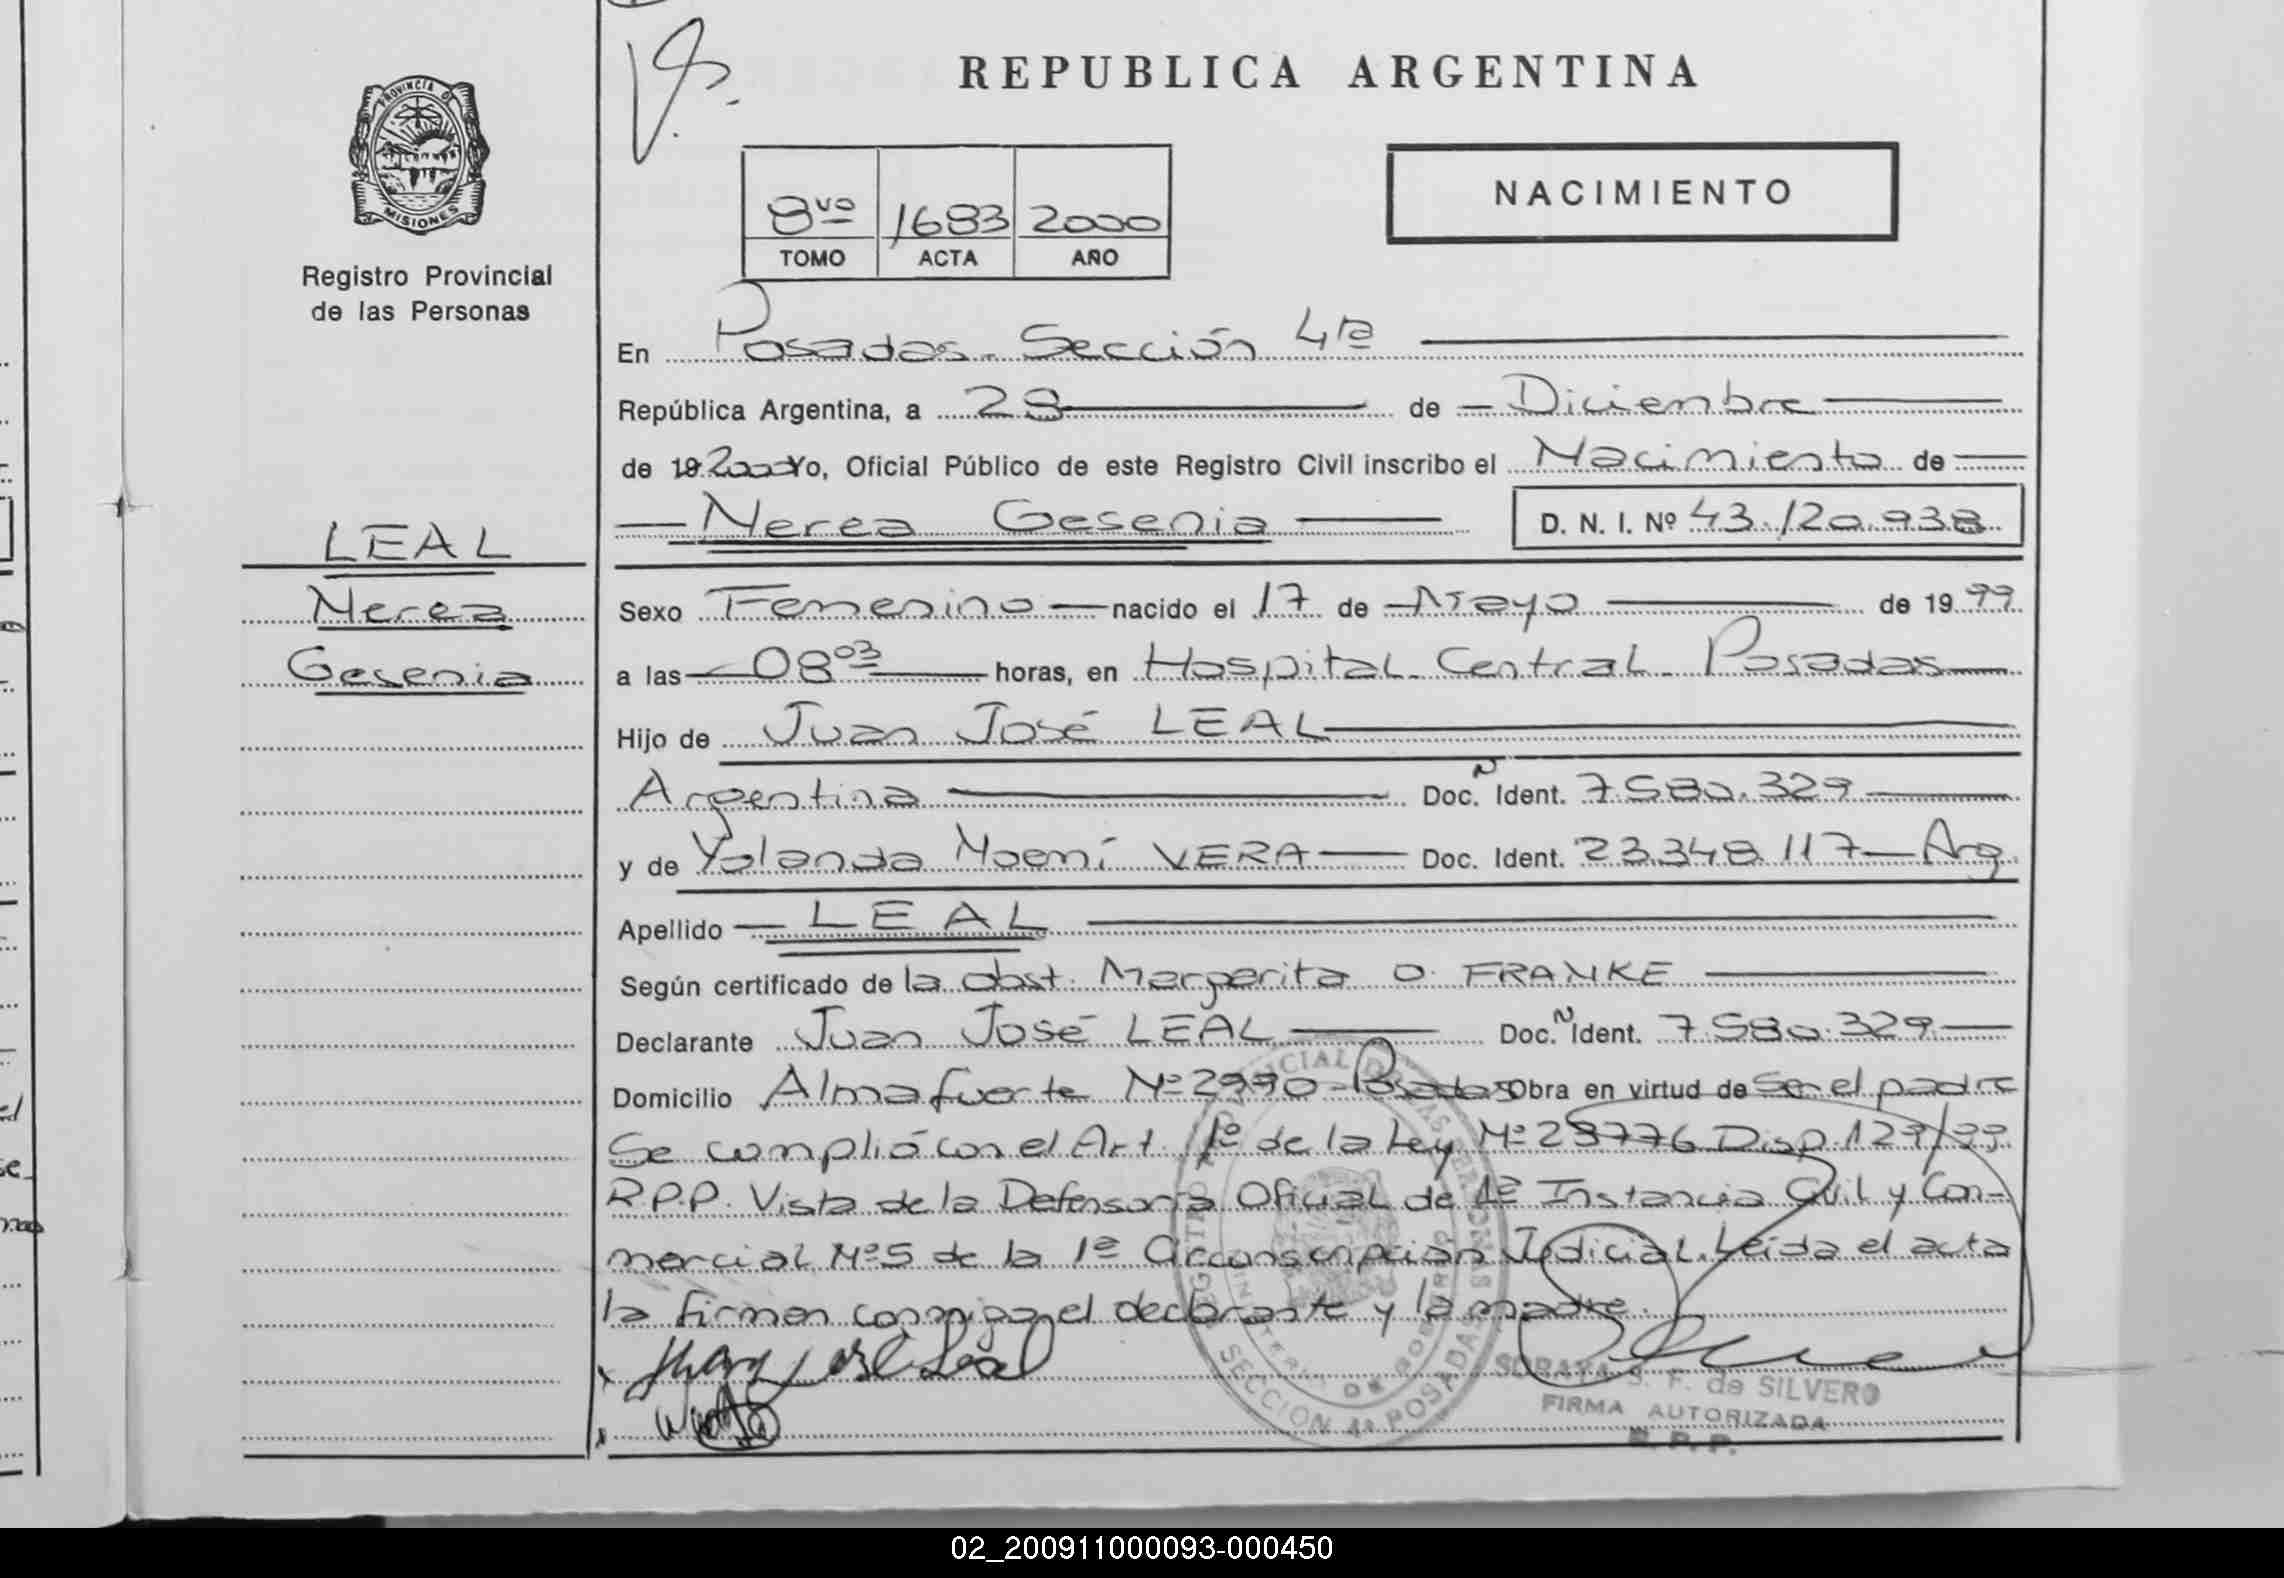 REPUBLICA ARGENTINA
PROVINCIA DE
MISIONES
Registro Provincial
de las Personas
8vo 1683 2000
TOMO ACTA AÑO
NACIMIENTO
En Posadas. Sección 4ta
República Argentina, a 29 de Diciembre
de 19 2000 Yo, Oficial Público de este Registro Civil inscribo el Nacimiento de
Nerea Gesenia D. N. I. Nº 43.120.938
LEAL
Nerea
Gesenia
Sexo Femenino nacido el 17 de Mayo de 1999
a las 08 03 horas, en Hospital Central. Posadas
Hijo de Juan José LEAL
Argentina Doc. N Ident. 7.580.329
y de Yolanda Noemí VERA Doc. Ident. 23.348.117 Arg.
Apellido LEAL
Según certificado de la obst. Margarita O. FRANKE
Declarante Juan José LEAL Doc. N Ident. 7.580.329
Domicilio Almafuerte Nº 2990 Posadas Obra en virtud de Ser el padre
Se cumplió con el Art. 1º de la Ley Nº 23776 Disp 129/99
R.P.P. Vista de la Defensoría Oficial de 1ª Instancia Civil y Co-
mercial Nº 5 de la 1ª Circunscripción Judicial. Leída el acta
la firman conmigo el declarante y la madre.
Juan José Leal
REGISTRO PROVINCIAL DE LAS PERSONAS
MINISTERIO DE GOBIERNO
SECCION 4a POSADAS
SORAYA S. F. de SILVERO
FIRMA AUTORIZADA
R. P. P.
02_200911000093-000450